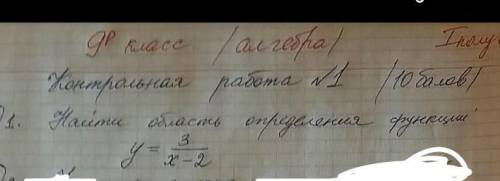 9р класс /алгебра/ I полу
Контрольная работа №1 /10 балов/
1. Найти область определения функции
y = 3/(x-2)